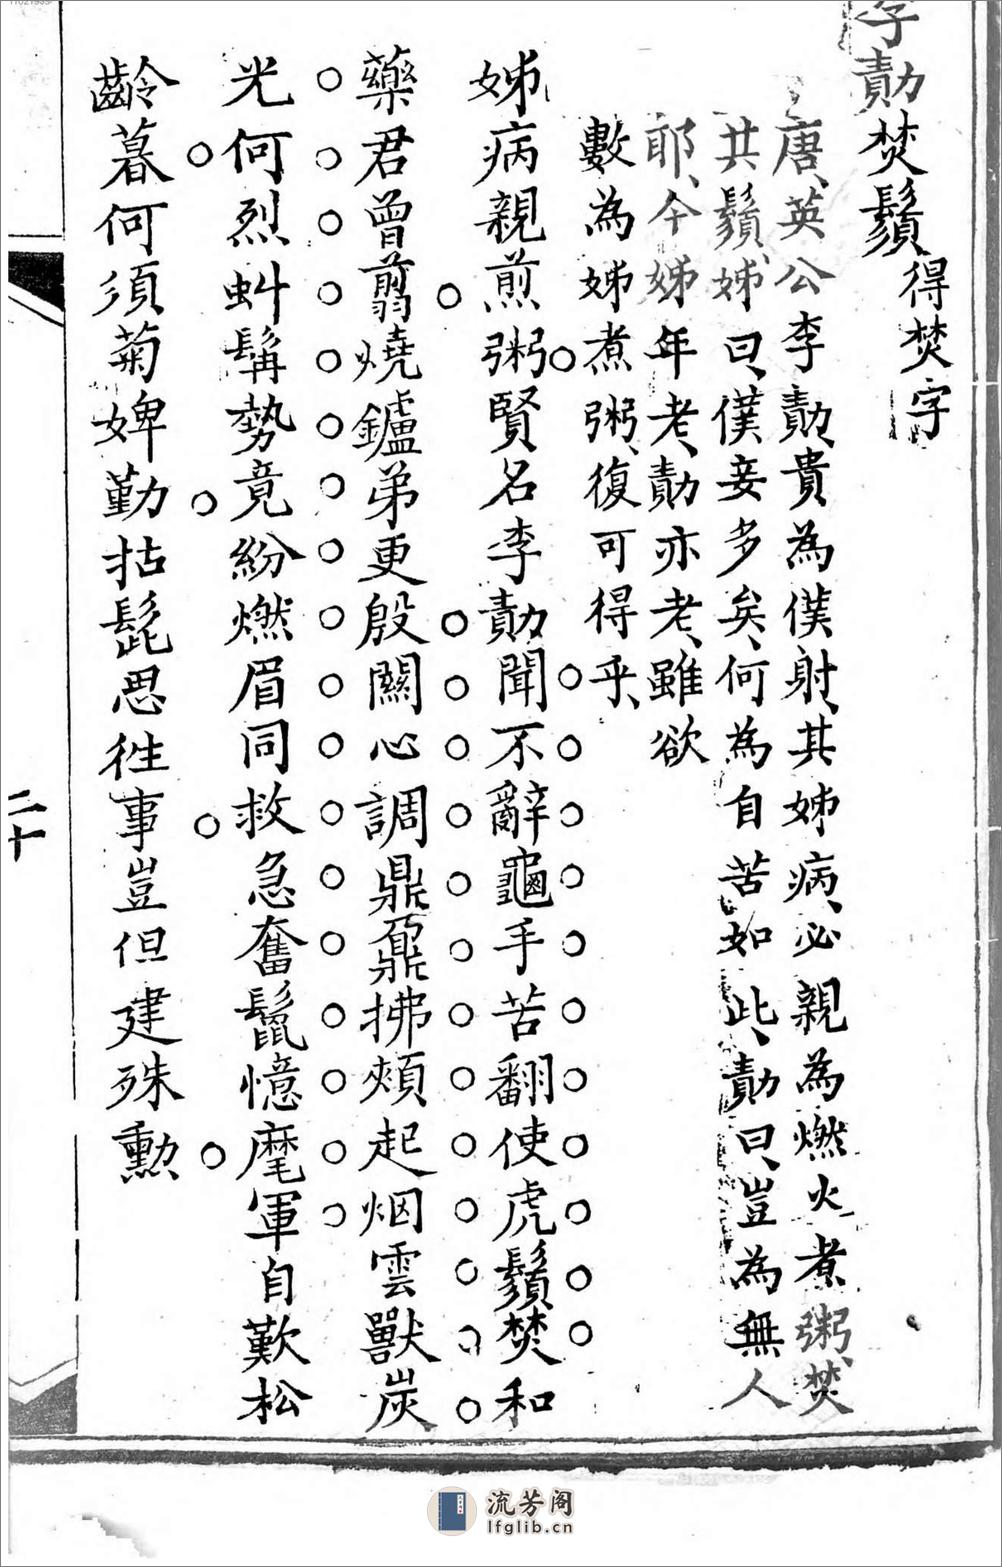 李勣焚鬚
得焚字
唐、英公李勣、貴為僕射、其姊病、必親為燃火煮粥、焚
其鬚、姊曰、僕妾多矣、何為自苦如此、勣曰、豈為無人
耶、今姊年老、勣亦老、雖欲
數為姊煮粥、復可得乎、
姊病親煎粥賢名李勣聞不辭龜手苦翻使虎鬚焚和
藥君曾翦燒鑪弟更殷關心調鼎鼐拂頰起烟雲獸炭
光何烈虯髯勢竟紛燃眉同救急奮鬣憶麾軍自歎松
齡暮何須菊婢勤拈髭思徃事豈但建殊勳
二十
流芳阁
lfglib.cn